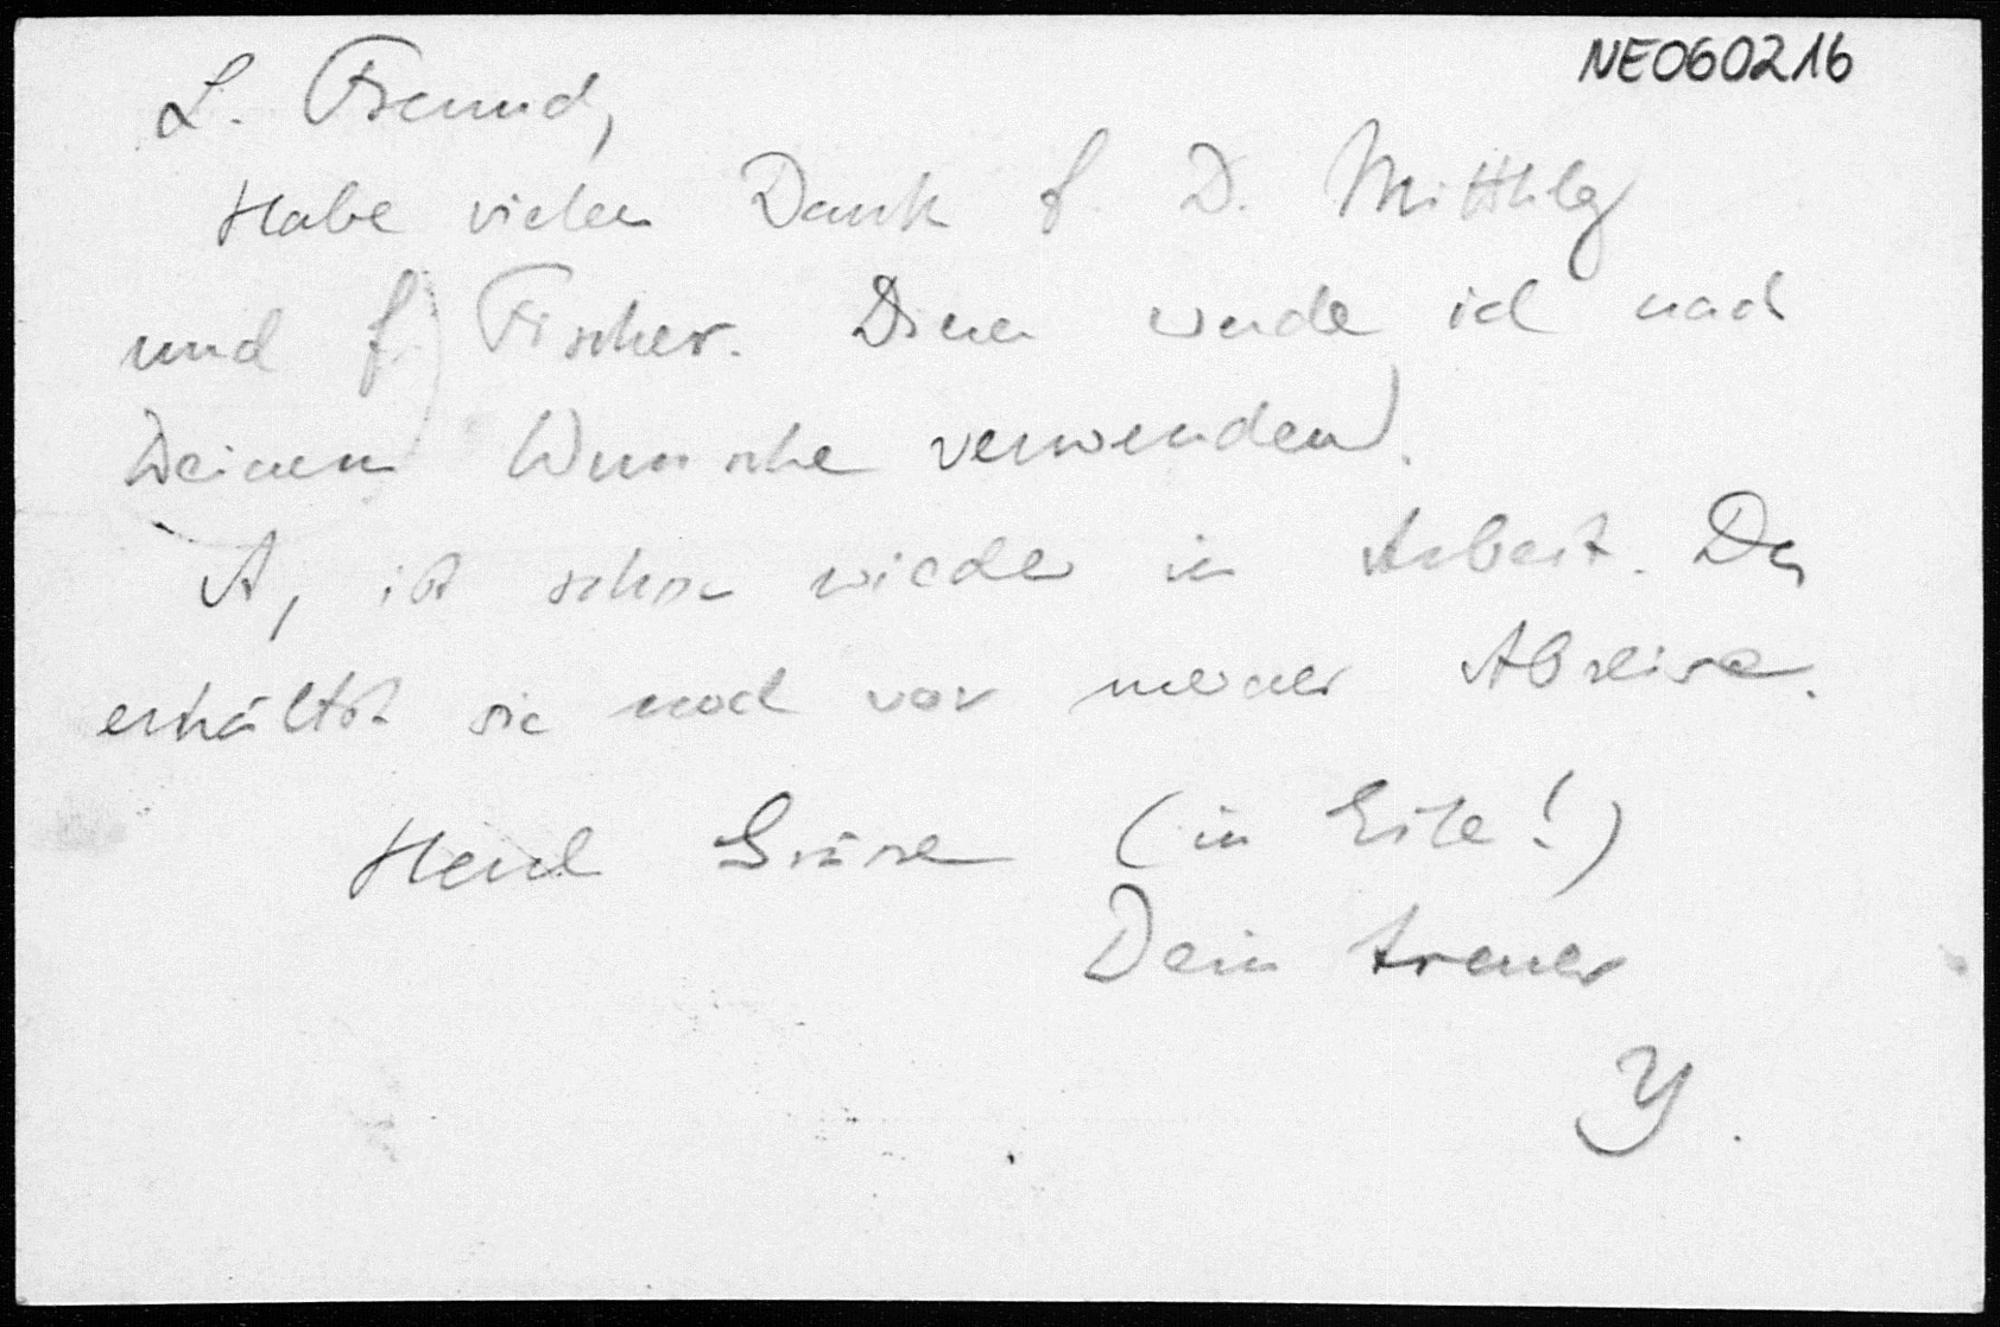 NE060216
L. Freund,
Habe vielen Dank f. D. Mitthlg
und f. Fischer. Diesen werde ich nach
Deinem Wunsche verwenden.
A, ist schon wieder in Arbeit. Du
erhältst sie noch vor meiner Abreise.
Herzl Grüsse (in Eile!)
Dein treuer
Y.